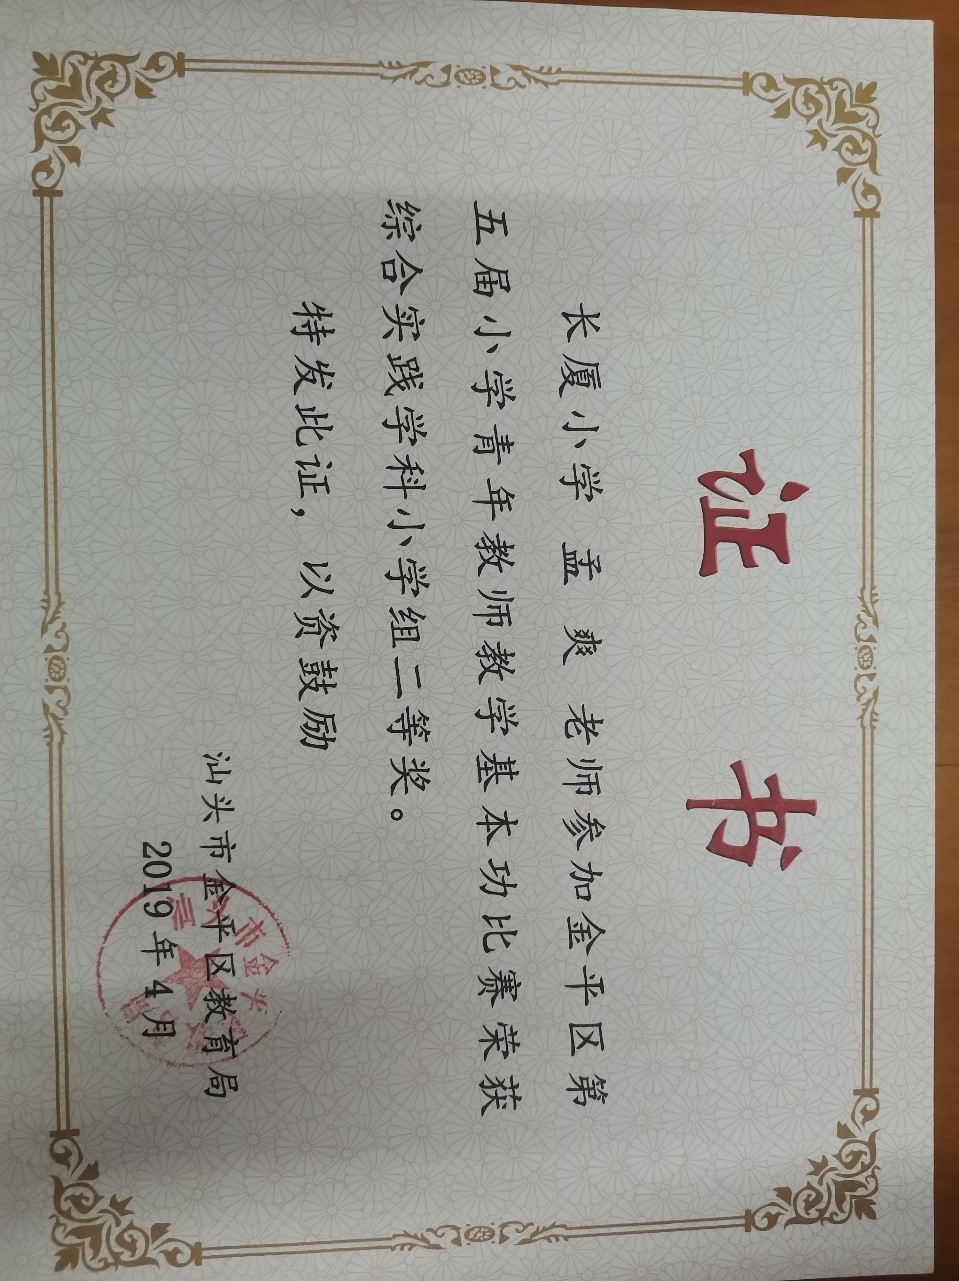 证书
长厦小学 孟 爽 老师参加金平区第
五届小学青年教师教学基本功比赛荣获
综合实践学科小学组二等奖。
特发此证，以资鼓励
汕头市金平区教育局
2019年4月